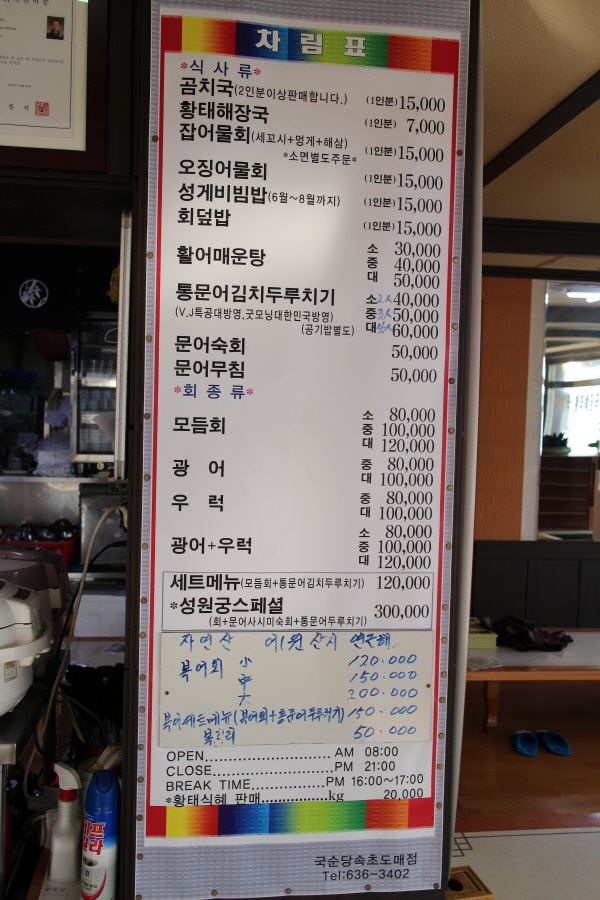 차림표
*식사류*
곰치국(2인분이상판매합니다.) (1인분)15,000
황태해장국 (1인분) 7,000
잡어물회(세꼬시+멍게+해삼) (1인분)15,000
*소면별도주문*
오징어물회 (1인분)15,000
성게비빔밥(6월~8월까지) (1인분)15,000
회덮밥 (1인분)15,000
활어매운탕 소 30,000
중 40,000
대 50,000
통문어김치두루치기 소 2人 40,000
(V.J특공대방영,굿모닝대한민국방영) 중 3人 50,000
(공기밥별도) 대 4人 60,000
문어숙회 50,000
문어무침 50,000
*회종류*
모듬회 소 80,000
중 100,000
대 120,000
광어 중 80,000
대 100,000
우럭 중 80,000
대 100,000
광어+우럭 소 80,000
중 100,000
대 120,000
세트메뉴(모듬회+통문어김치두루치기) 120,000
*성원궁스페셜 300,000
(회+문어사시미숙회+통문어두루치기)
자연산
복어회 小 120.000
中 150.000
大 200.000
복어세트메뉴(복어회+통문어두루치기) 150.000
50.000
OPEN............................ AM 08:00
CLOSE......................PM 21:00
BREAK TIME..............PM 16:00~17:00
*황태식혜 판매.................kg 20,000
국순당속초도매점
Tel:636-3402